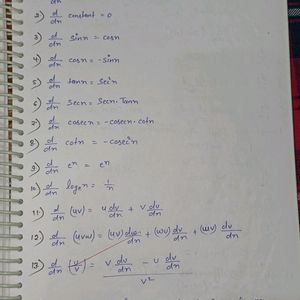 d/dn
2) d/dn constant = 0
3) d/dn sinn = cosn
4) d/dn cosn = -sinn
5) d/dn tann = Sec²n
6) d/dn Secn = Secn·Tann
7) d/dn cosecn = -cosecn·cotn
8) d/dn cotn = -cosec²n
9) d/dn eⁿ = eⁿ
10) d/dn logₑn = 1/n
11) d/dn (uv) = u dv/dn + v dv/dn
12) d/dn (uvw) = (uv) dw/dn + (wv) dv/dn + (uw) dv/dn
13) d/dn (u/v) = v dv/dn - u dv/dn / v²